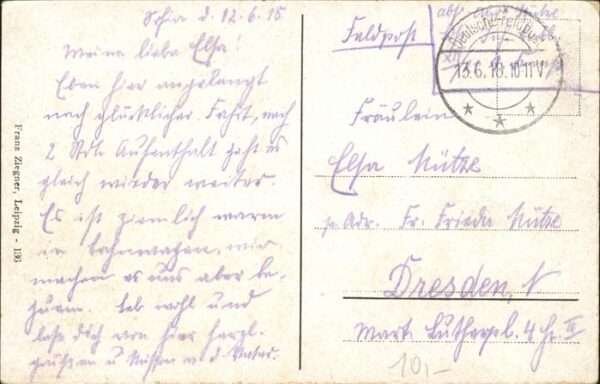 d. 12.6.18
Meine liebe Elsa!
Eben hier angelangt
nach glücklicher Fahrt, nach
2 Stdn Aufenthalt geht es
gleich wieder weiter.
Es ist ziemlich warm
im Bahnwagen, wir
machen es uns aber be-
quem. Leb wohl und
laß dich von hier herzl.
grüßen u küssen v. d.
Franz Ziegner, Leipzig - 193
Feldpost
Deutsche Feldpost
13.6.18.10-11V
Fräulein
Elsa Mütze
p. Adr. Fr. Frieda Mütze
Dresden, N
Mart. Lutherpl. 4 II
10,-